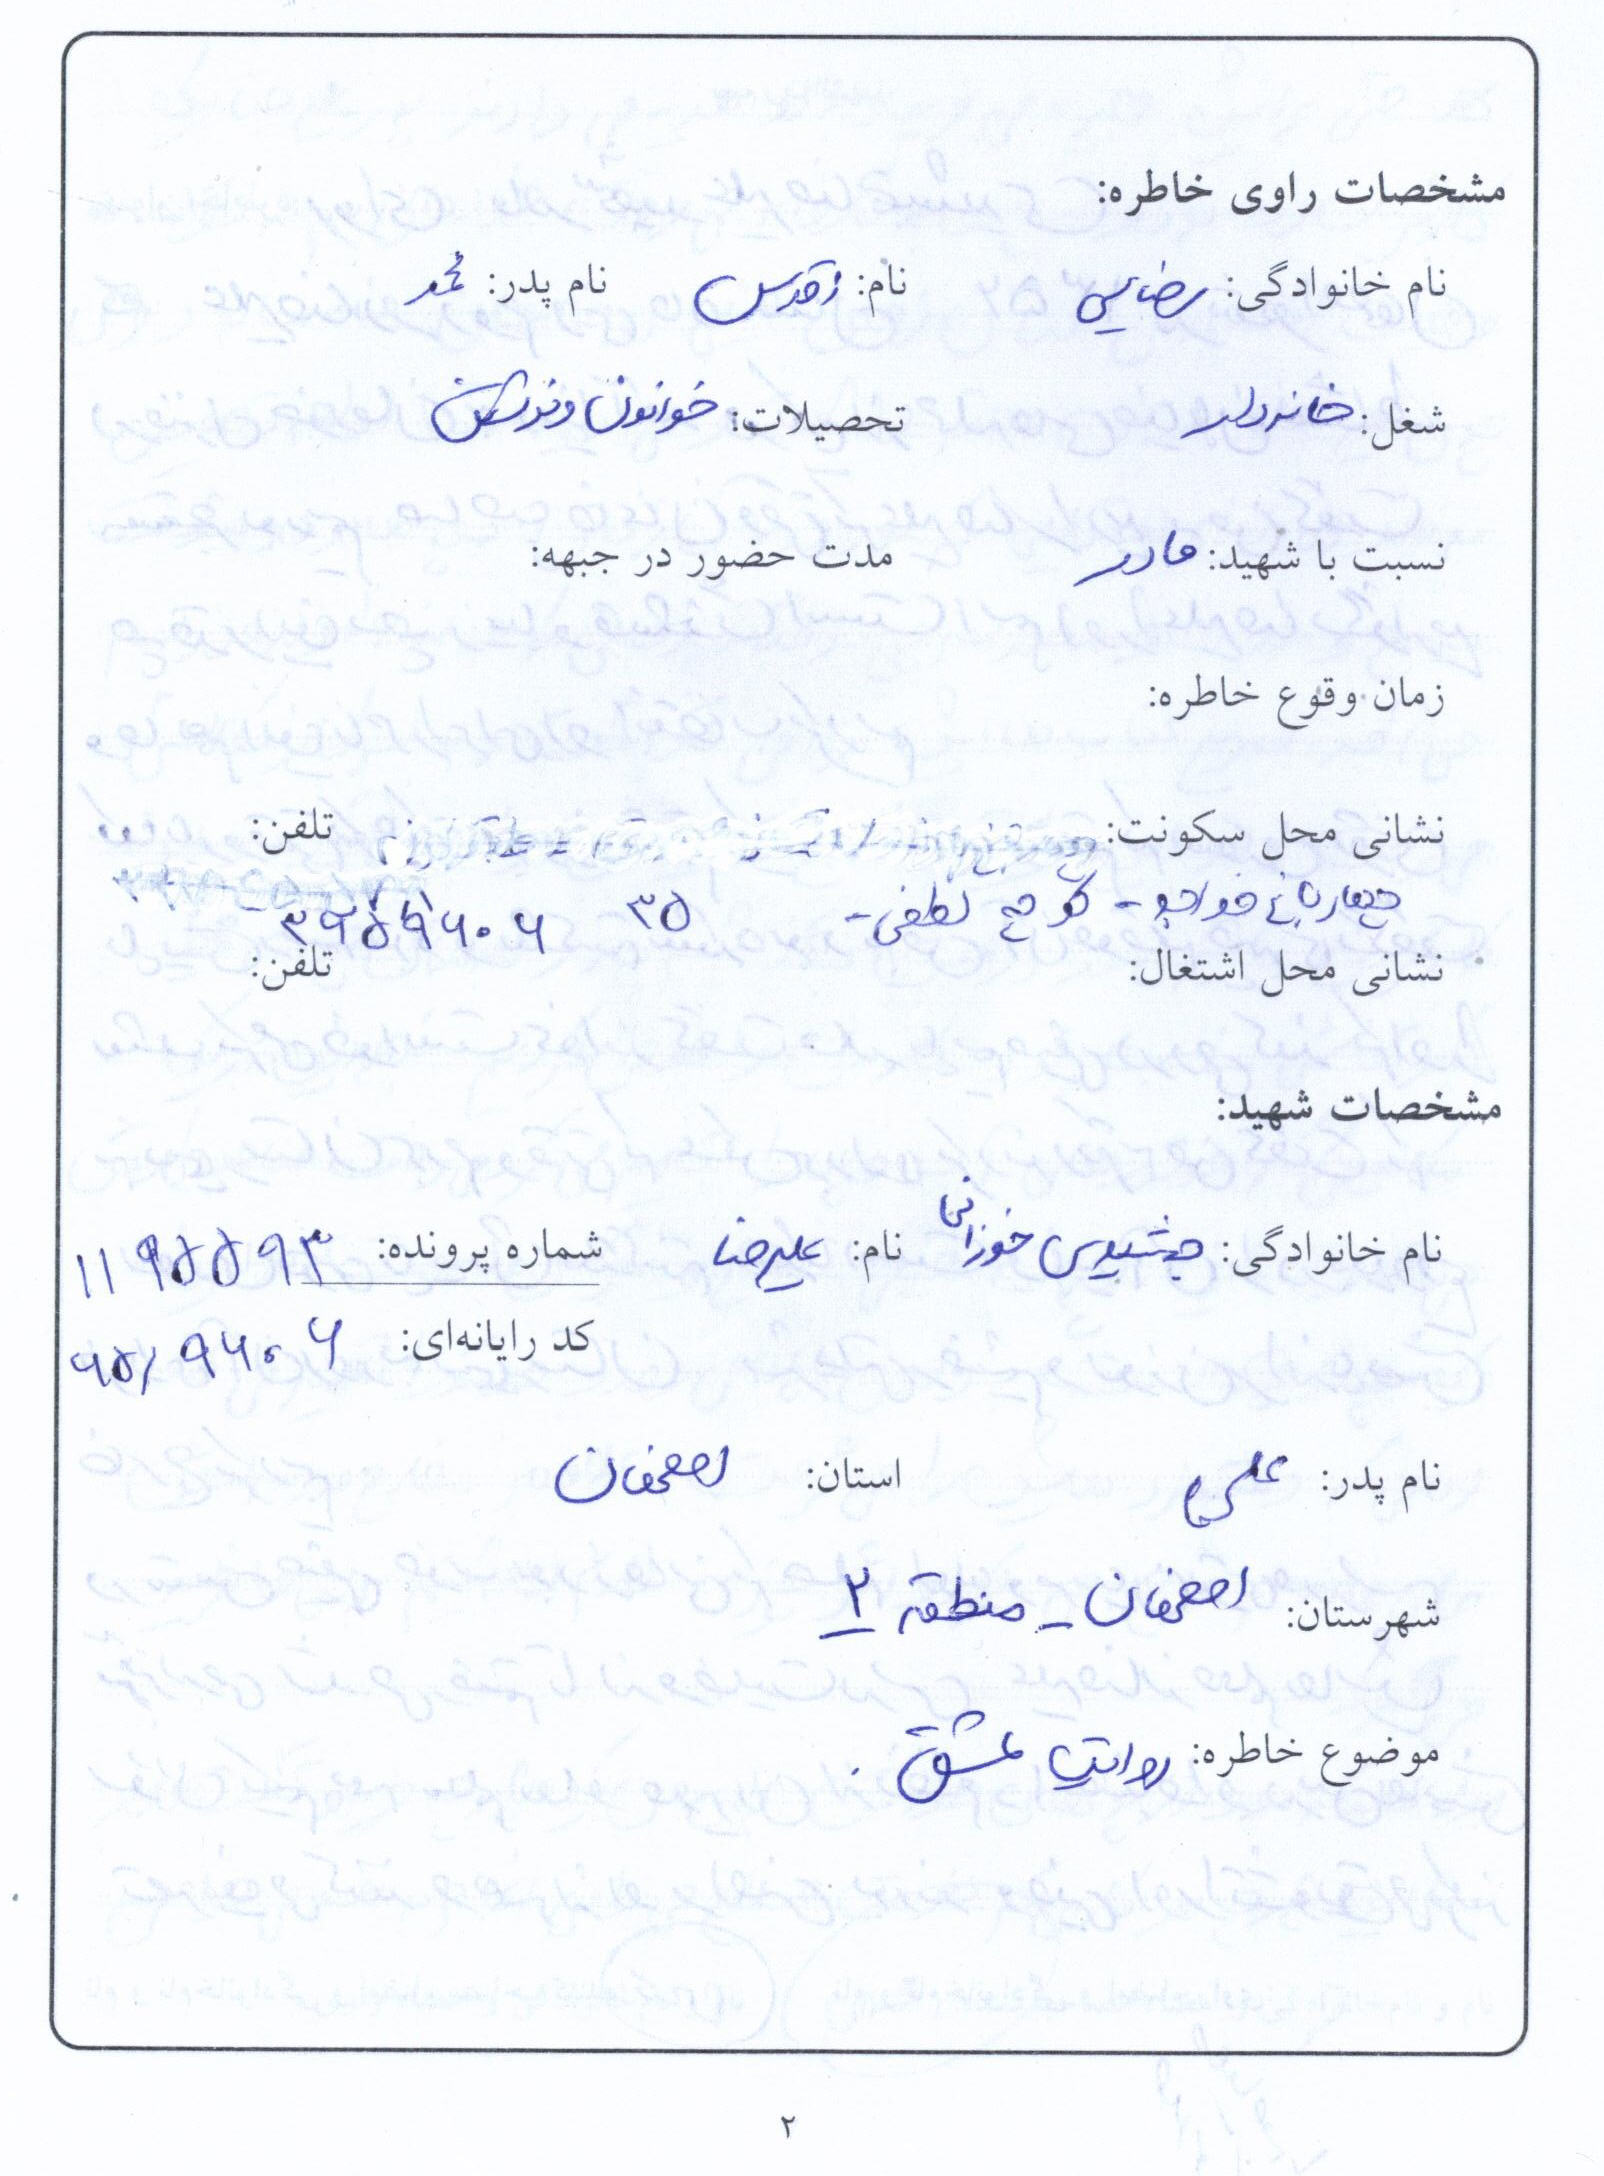 مشخصات راوی خاطره:
نام خانوادگی: رضایی نام: اقدس نام پدر: محمد
شغل: خانه‌دار تحصیلات: خواندن و نوشتن
نسبت با شهید: مادر مدت حضور در جبهه:
زمان وقوع خاطره:
نشانی محل سکونت: تلفن:
چهارباغ خواجو - کوچه لطفی - ۳۵
نشانی محل اشتغال: تلفن:
مشخصات شهید:
نام خانوادگی: جمشیدی خوزانی نام: علیرضا شماره پرونده: ۱۱۹۵۵۹۳
کد رایانه‌ای:
نام پدر: علی استان: اصفهان
شهرستان: اصفهان - منطقه ۲
موضوع خاطره: روایت عشق.
۲